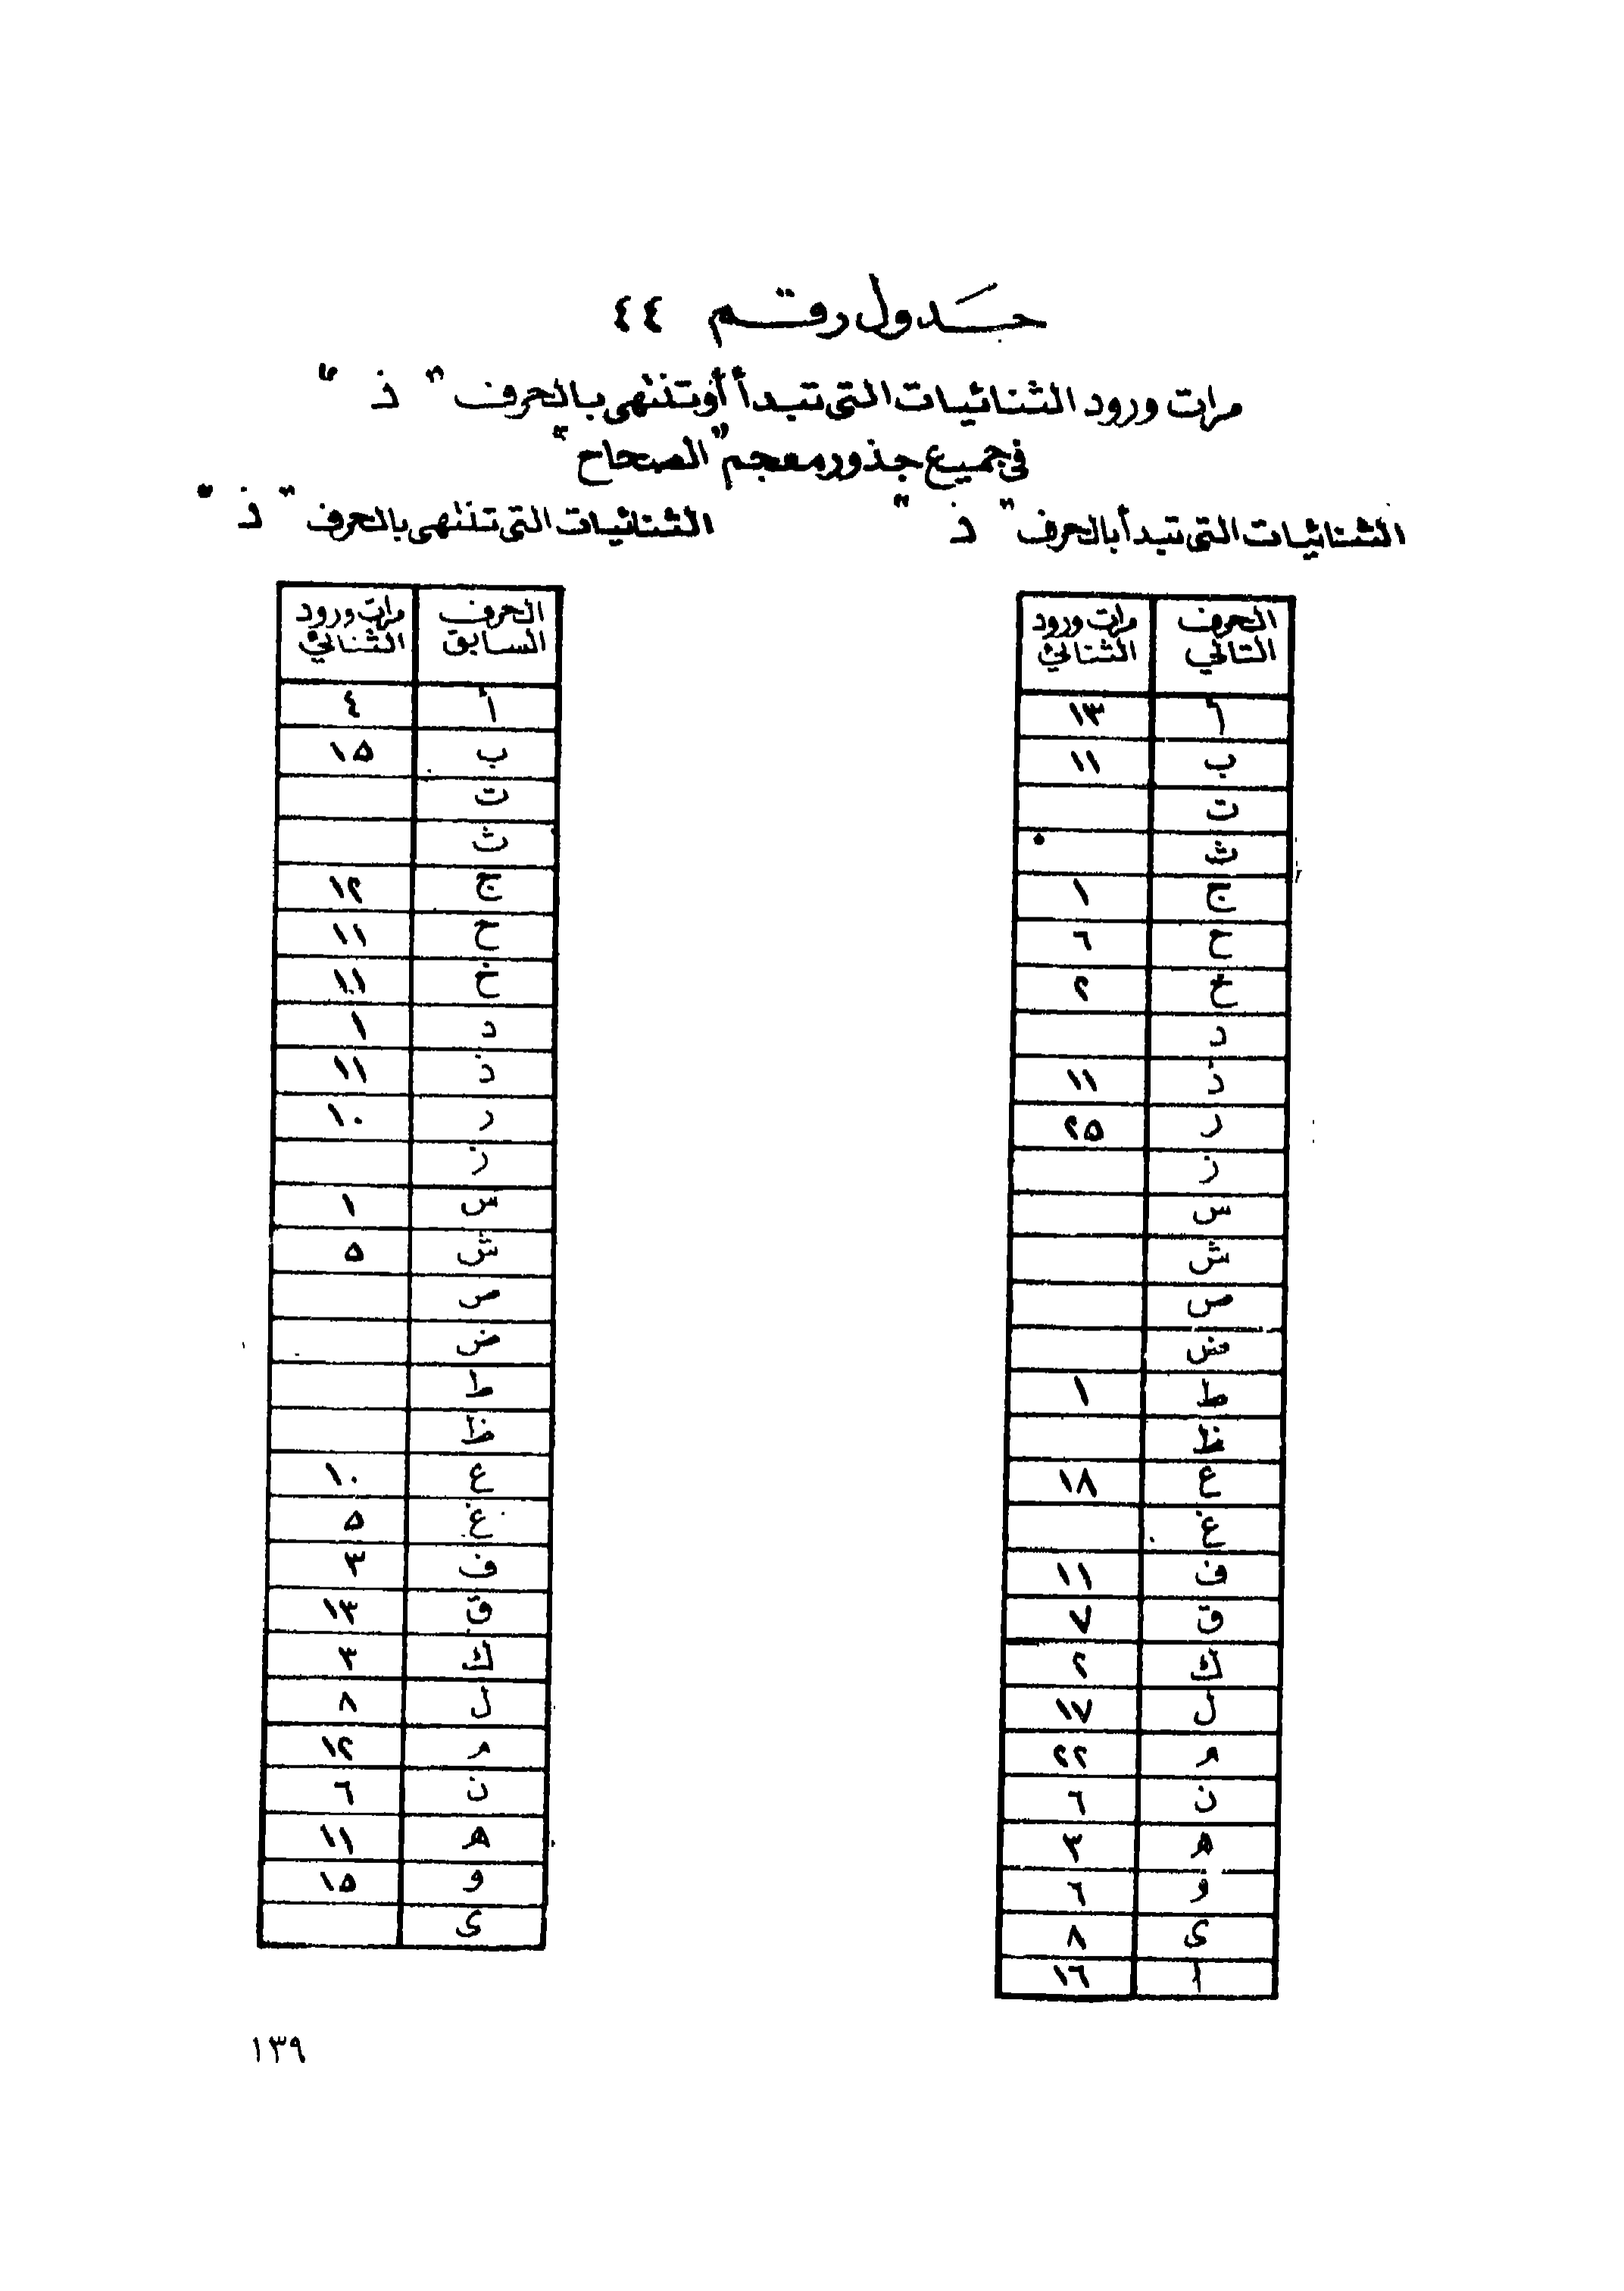 جدول رقم ٤٤
مرات ورود الثنائيات التى تبدأ أو تنتهى بالحرف " ذ "
فى جميع جذور معجم "الصحاح"
الثنائيات التى تبدأ بالحرف " ذ "
الحرف التالي | مرات ورود الثنائي
أ | ١٣
ب | ١١
ت |
ث | ٠
ج | ١
ح | ٦
خ | ٢
د |
ذ | ١١
ر | ٢٥
ز |
س |
ش |
ص |
ض |
ط | ١
ظ |
ع | ١٨
غ |
ف | ١١
ق | ٧
ك | ٢
ل | ١٧
م | ٢٢
ن | ٦
ه | ٣
و | ٦
ى | ٨
ا | ١٦
الثنائيات التى تنتهى بالحرف " ذ "
الحرف السابق | مرات ورود الثنائي
أ | ٤
ب | ١٥
ت |
ث |
ج | ١٢
ح | ١١
خ | ١١
د | ١
ذ | ١١
ر | ١٠
ز |
س | ١
ش | ٥
ص |
ض |
ط |
ظ |
ع | ١٠
غ | ٥
ف | ٣
ق | ١٣
ك | ٣
ل | ٨
م | ١٢
ن | ٦
ه | ١١
و | ١٥
ى |
١٣٩